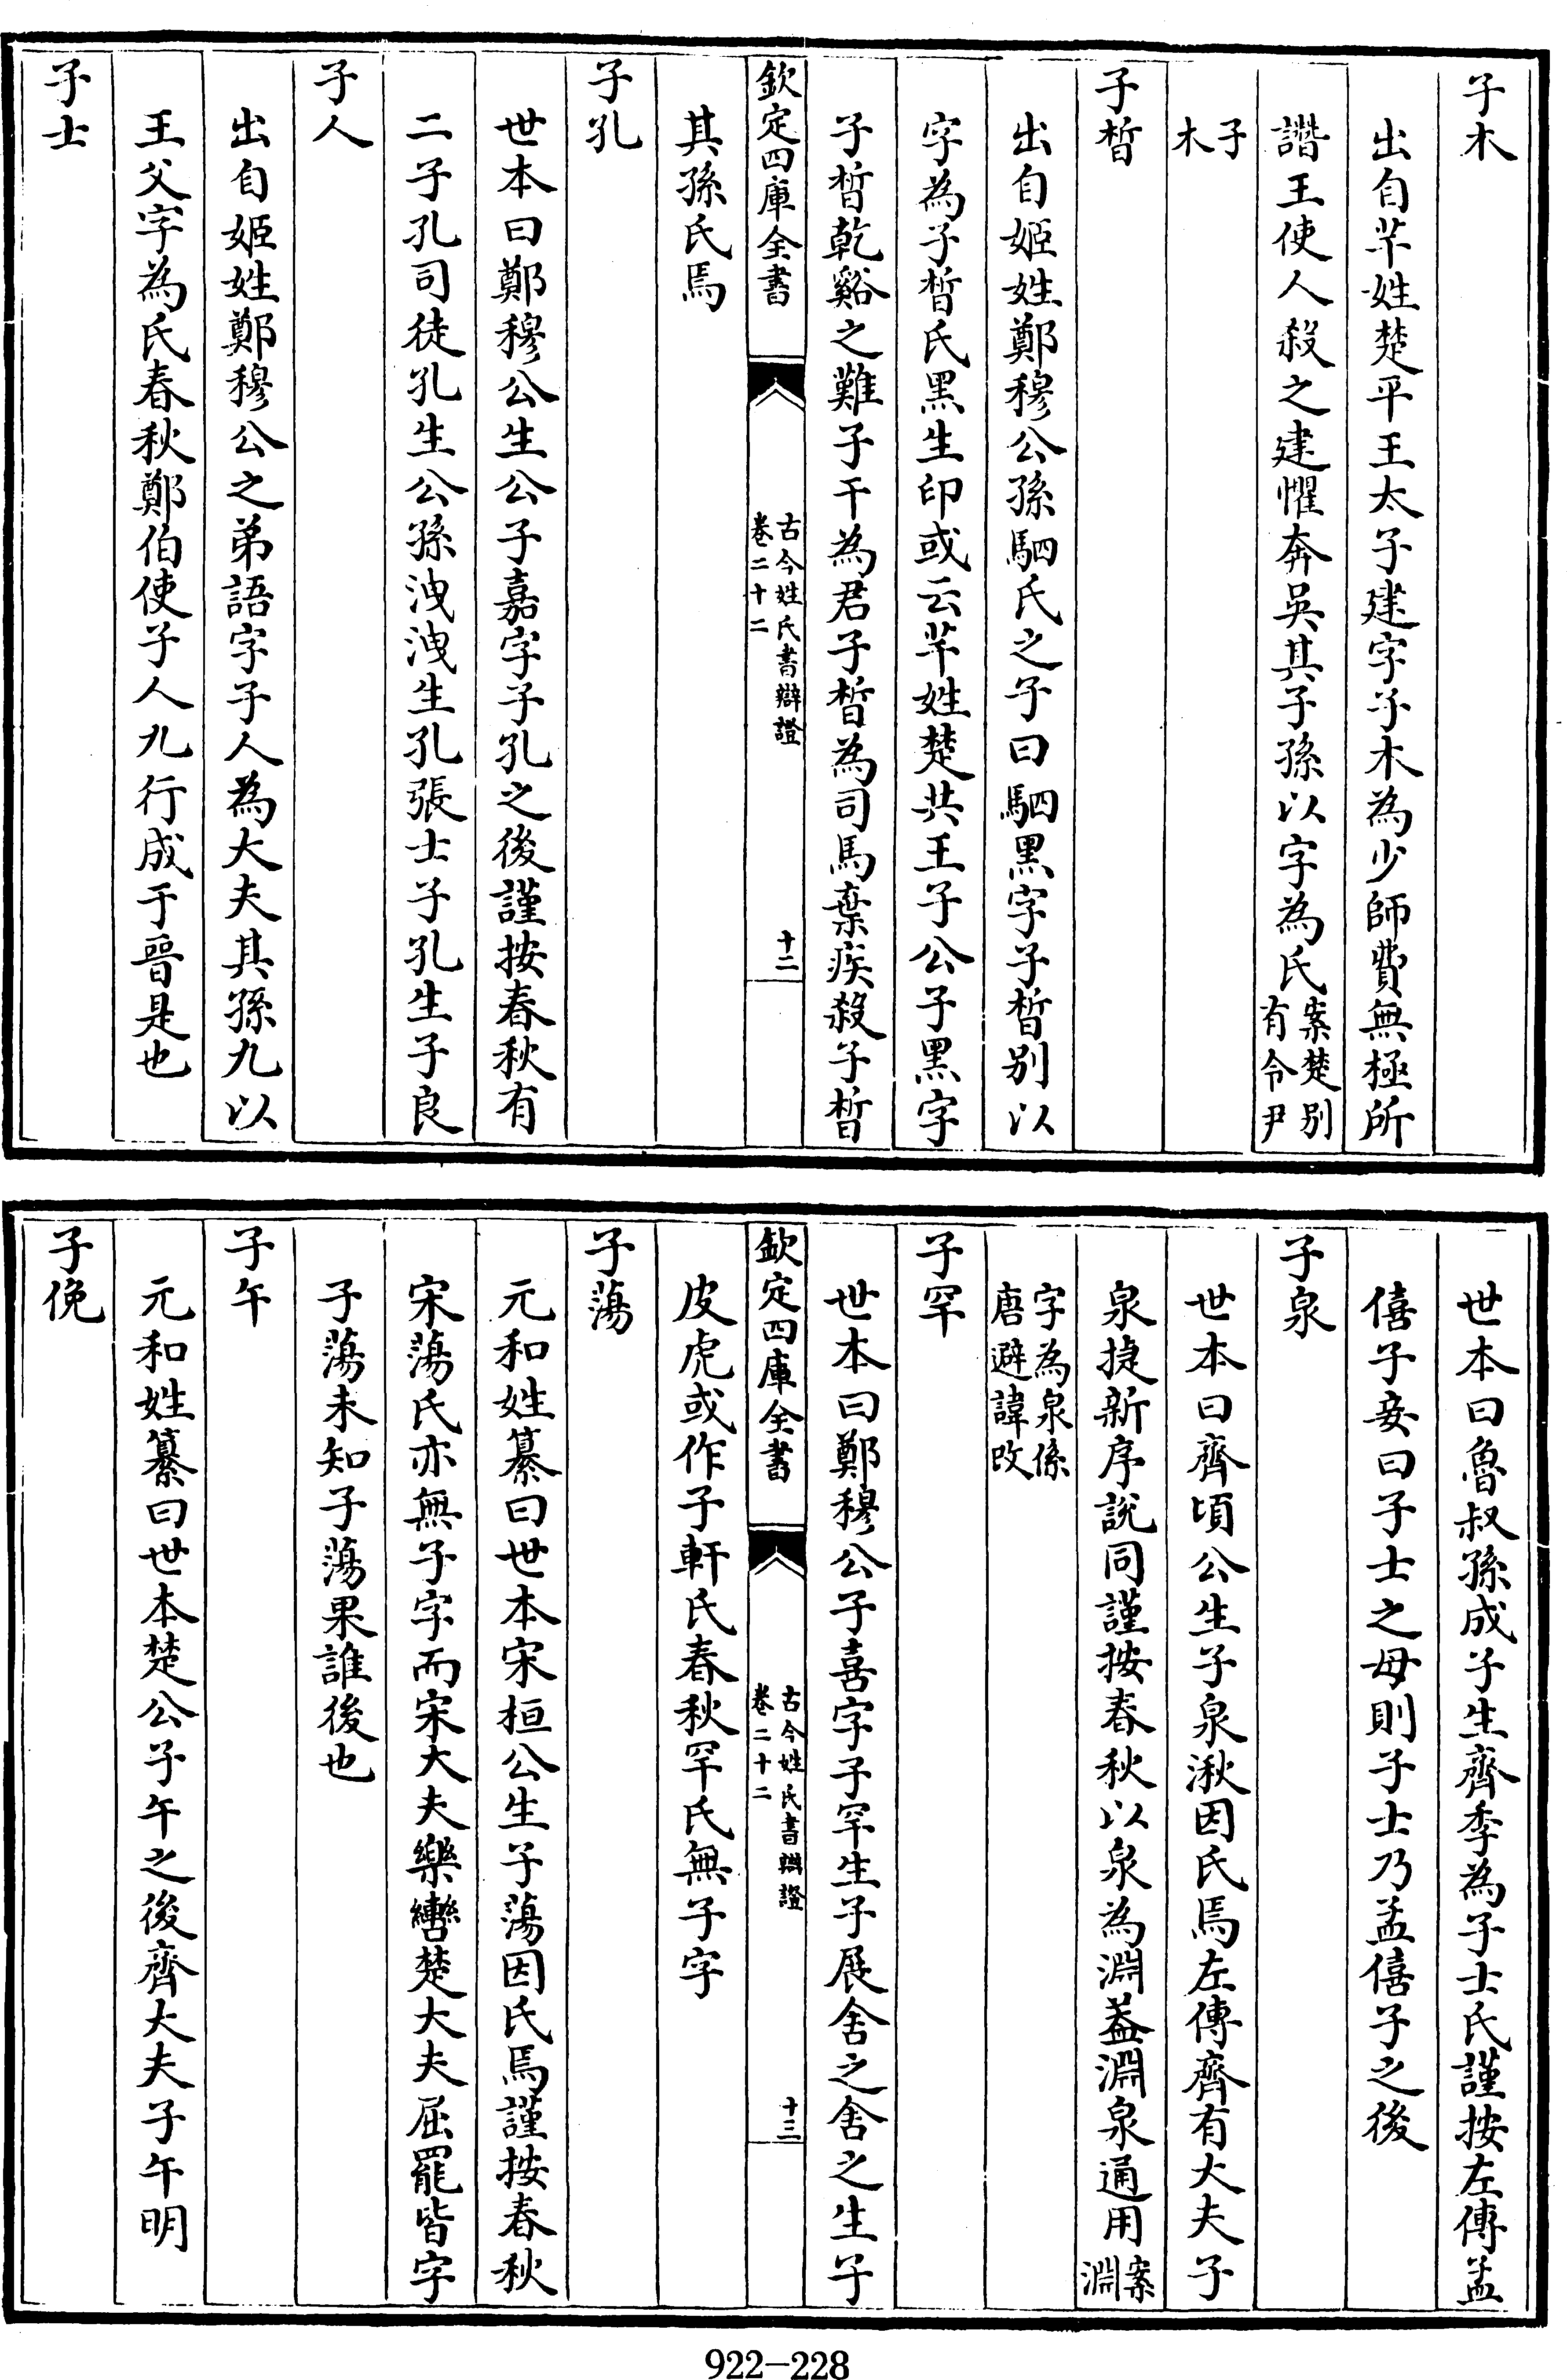 子木
出自芈姓楚平王太子建字子木為少師費無極所
譖王使人殺之建懼奔吳其子孫以字為氏案楚别有令尹
子木
子晳
出自姬姓鄭穆公孫駟氏之子曰駟黑字子晳别以
字為子晳氏黑生印或云芈姓楚共王子公子黑字
子晳乾谿之難子干為君子晳為司馬棄疾殺子晳
欽定四庫全書
古今姓氏書辯證
卷二十二
十二
其孫氏焉
子孔
世本曰鄭穆公生公子嘉字子孔之後謹按春秋有
二子孔司徒孔生公孫洩洩生孔張士子孔生子良
子人
出自姬姓鄭穆公之弟語字子人為大夫其孫九以
王父字為氏春秋鄭伯使子人九行成于晉是也
子士
世本曰魯叔孫成子生齊季為子士氏謹按左傳孟
僖子妾曰子士之母則子士乃孟僖子之後
子泉
世本曰齊頃公生子泉湫因氏焉左傳齊有大夫子
泉捷新序説同謹按春秋以泉為淵葢淵泉通用案淵
字為泉係唐避諱改
子罕
世本曰鄭穆公子喜字子罕生子展舍之舍之生子
欽定四庫全書
古今姓氏書辯證
卷二十二
十三
皮虎或作子軒氏春秋罕氏無子字
子蕩
元和姓纂曰世本宋桓公生子蕩因氏焉謹按春秋
宋蕩氏亦無子字而宋大夫樂轡楚大夫屈罷皆字
子蕩未知子蕩果誰後也
子午
元和姓纂曰世本楚公子午之後齊大夫子午明
子俛
922-228